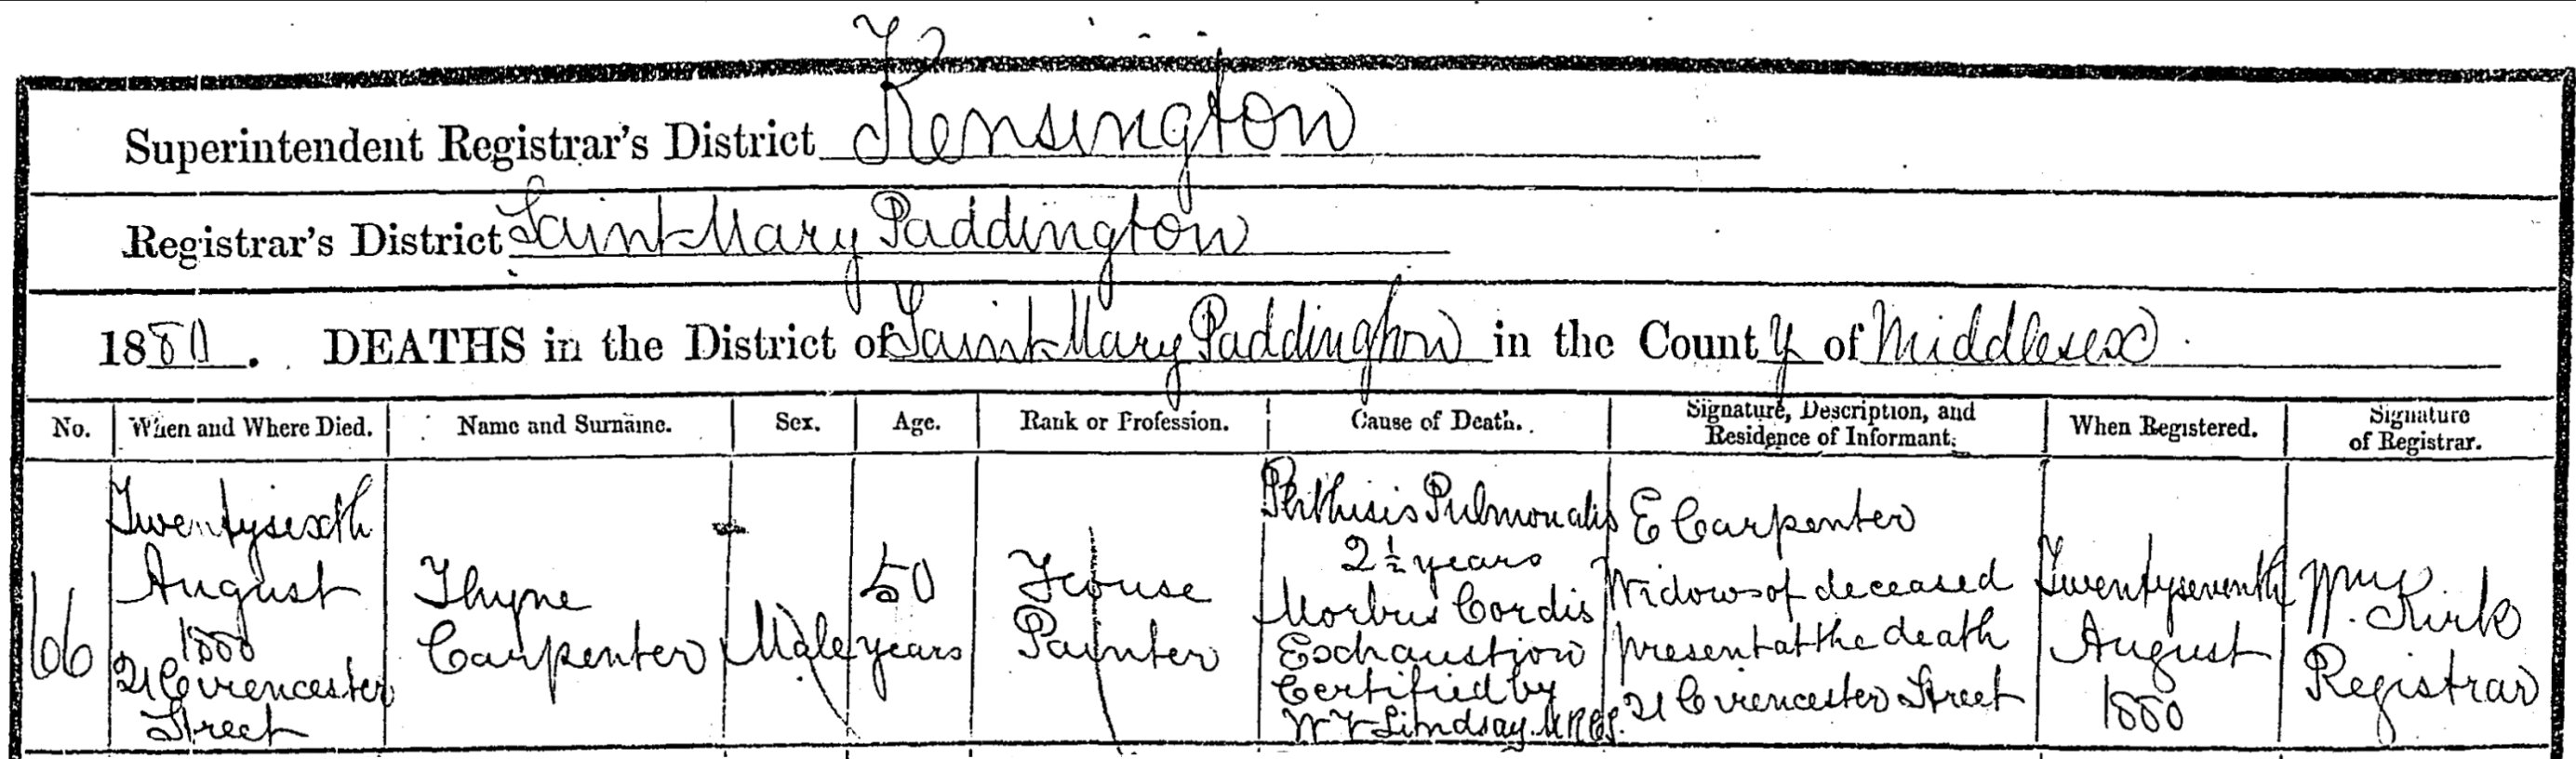 Superintendent Registrar's District Kensington
Registrar's District Saint Mary Paddington
1880. DEATHS in the District of Saint Mary Paddington in the County of Middlesex
No. When and Where Died. Name and Surname. Sex. Age. Rank or Profession. Cause of Death. Signature, Description, and Residence of Informant. When Registered. Signature of Registrar.
66
Twentysixth
August
1880
21 Cirencester
Street
Thyne
Carpenter
Male
50
years
House
Painter
Phthisis Pulmonalis
2 1/2 years
Morbus Cordis
Exhaustion
Certified by
Lindsay. M.R.C.S.
E Carpenter
Widow of deceased
present at the death
21 Cirencester Street
Twentyseventh
August
1880
Wm
Kirk
Registrar